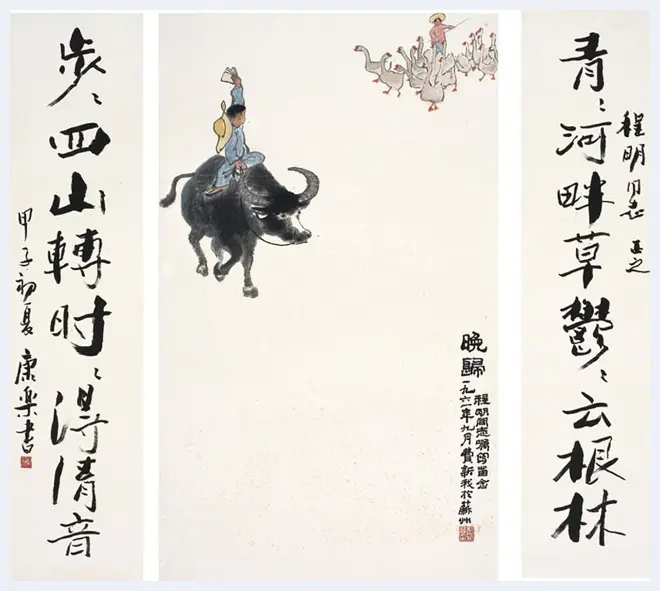 程明同志正之
青〻河畔草鬱〻云根林
晚歸
程明同志嘱写留念
一九六一年九月費新我於蘇州
步〻四山轉时〻得清音
甲子初夏康樂書